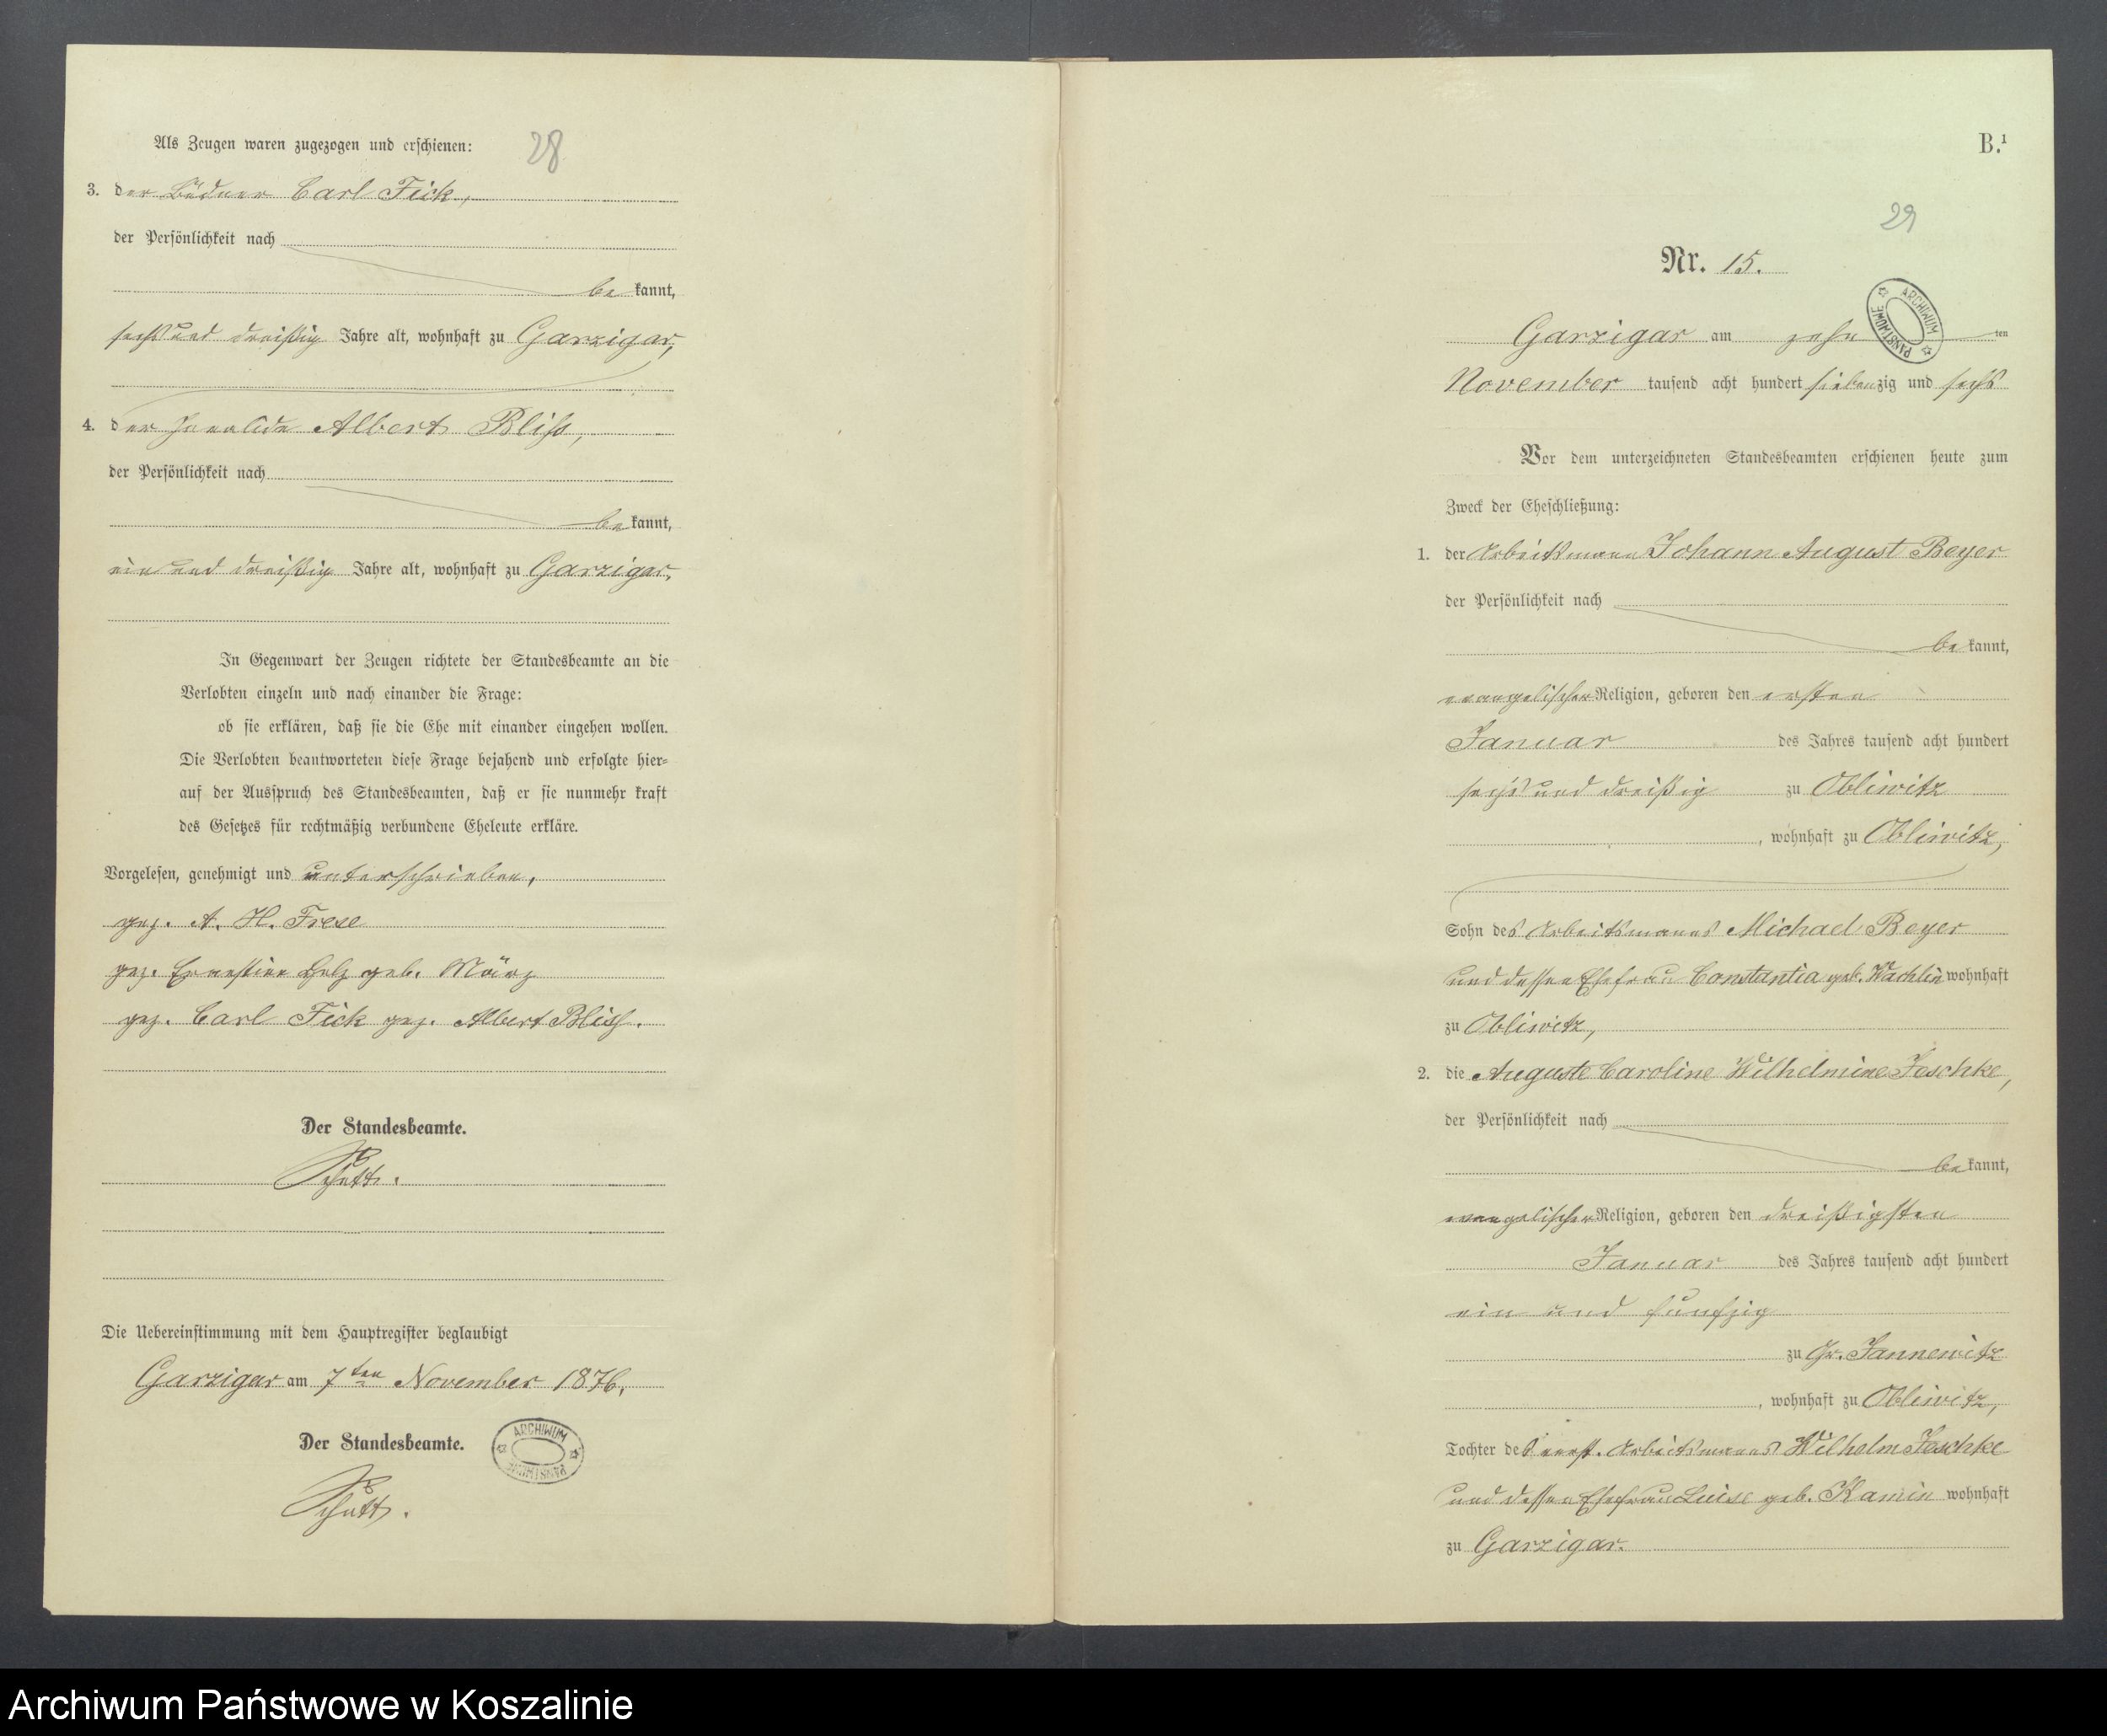 Als Zeugen waren zugezogen und erschienen:
28
3. der Büdner Carl Fick,
der Persönlichkeit nach
be kannt,
sechs und dreißig Jahre alt, wohnhaft zu Garzigar,
4. der Invalide Albert Bliß,
der Persönlichkeit nach
be kannt,
ein und dreißig Jahre alt, wohnhaft zu Garzigar,
In Gegenwart der Zeugen richtete der Standesbeamte an die
Verlobten einzeln und nach einander die Frage:
ob sie erklären, daß sie die Ehe mit einander eingehen wollen.
Die Verlobten beantworteten diese Frage bejahend und erfolgte hier-
auf der Ausspruch des Standesbeamten, daß er sie nunmehr kraft
des Gesetzes für rechtmäßig verbundene Eheleute erkläre.
Vorgelesen, genehmigt und unterschrieben,
gez. A. H. Frese
gez. Ernestine geb. März
gez. Carl Fick gez. Albert Bliß.
Der Standesbeamte.
Schütt.
Die Uebereinstimmung mit dem Hauptregister beglaubigt
Garzigar am 7ten November 1876,
Der Standesbeamte.
ARCHIWUM PAŃSTWOWE
Schütt.
B.¹
29
Nr. 15.
ARCHIWUM PAŃSTWOWE
Garzigar am zehn ten
November tausend acht hundert siebenzig und sechs
Vor dem unterzeichneten Standesbeamten erschienen heute zum
Zweck der Eheschließung:
1. der Arbeitsmann Johann August Beyer
der Persönlichkeit nach
be kannt,
evangelischer Religion, geboren den ersten
Januar des Jahres tausend acht hundert
sechs und dreißig zu Obliwitz
, wohnhaft zu Obliwitz,
Sohn des Arbeitsmanns Michael Beyer
und dessen Ehefrau Constantia geb. Wachlin wohnhaft
zu Obliwitz,
2. die Auguste Caroline Wilhelmine Jeschke,
der Persönlichkeit nach
be kannt,
evangelischer Religion, geboren den dreißigsten
Januar des Jahres tausend acht hundert
ein und funfzig
zu Gr. Jannewitz
, wohnhaft zu Obliwitz,
Tochter des verst. Arbeitsmanns Wilhelm Jeschke
und dessen Ehefrau Luise geb. Kamin wohnhaft
zu Garzigar.
Archiwum Państwowe w Koszalinie